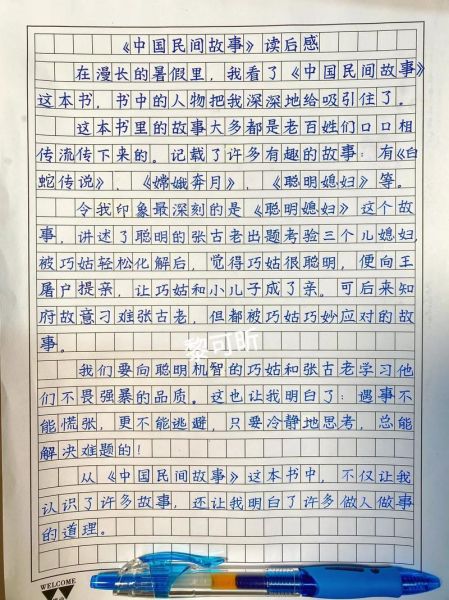 《中国民间故事》读后感
在漫长的暑假里，我看了《中国民间故事》
这本书，书中的人物把我深深地给吸引住了。
这本书里的故事大多都是老百姓们口口相
传流传下来的。记载了许多有趣的故事：有《白
蛇传说》，《嫦娥奔月》，《聪明媳妇》等。
令我印象最深刻的是《聪明媳妇》这个故
事，讲述了聪明的张古老出题考验三个儿媳妇，
被巧姑轻松化解后，觉得巧姑很聪明，便向王
屠户提亲，让巧姑和小儿子成了亲。可后来知
府故意刁难张古老，但都被巧姑巧妙应对的故
事。
黎可昕
我们要向聪明机智的巧姑和张古老学习他
们不畏强暴的品质。这也让我明白了：遇事不
能慌张，更不能逃避，只要冷静地思考，总能
解决难题的！
从《中国民间故事》这本书中，不仅让我
认识了许多故事，还让我明白了许多做人做事
的道理。
WELCOME